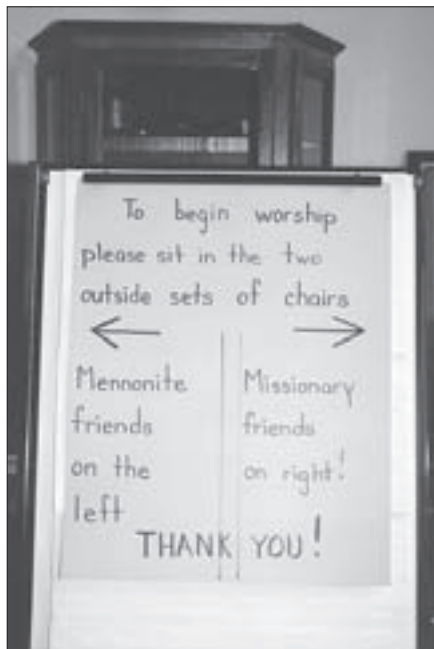 To begin worship
please sit in the two
outside sets of chairs
Mennonite
friends
on the
left
Missionary
friends
on right!
THANK YOU!